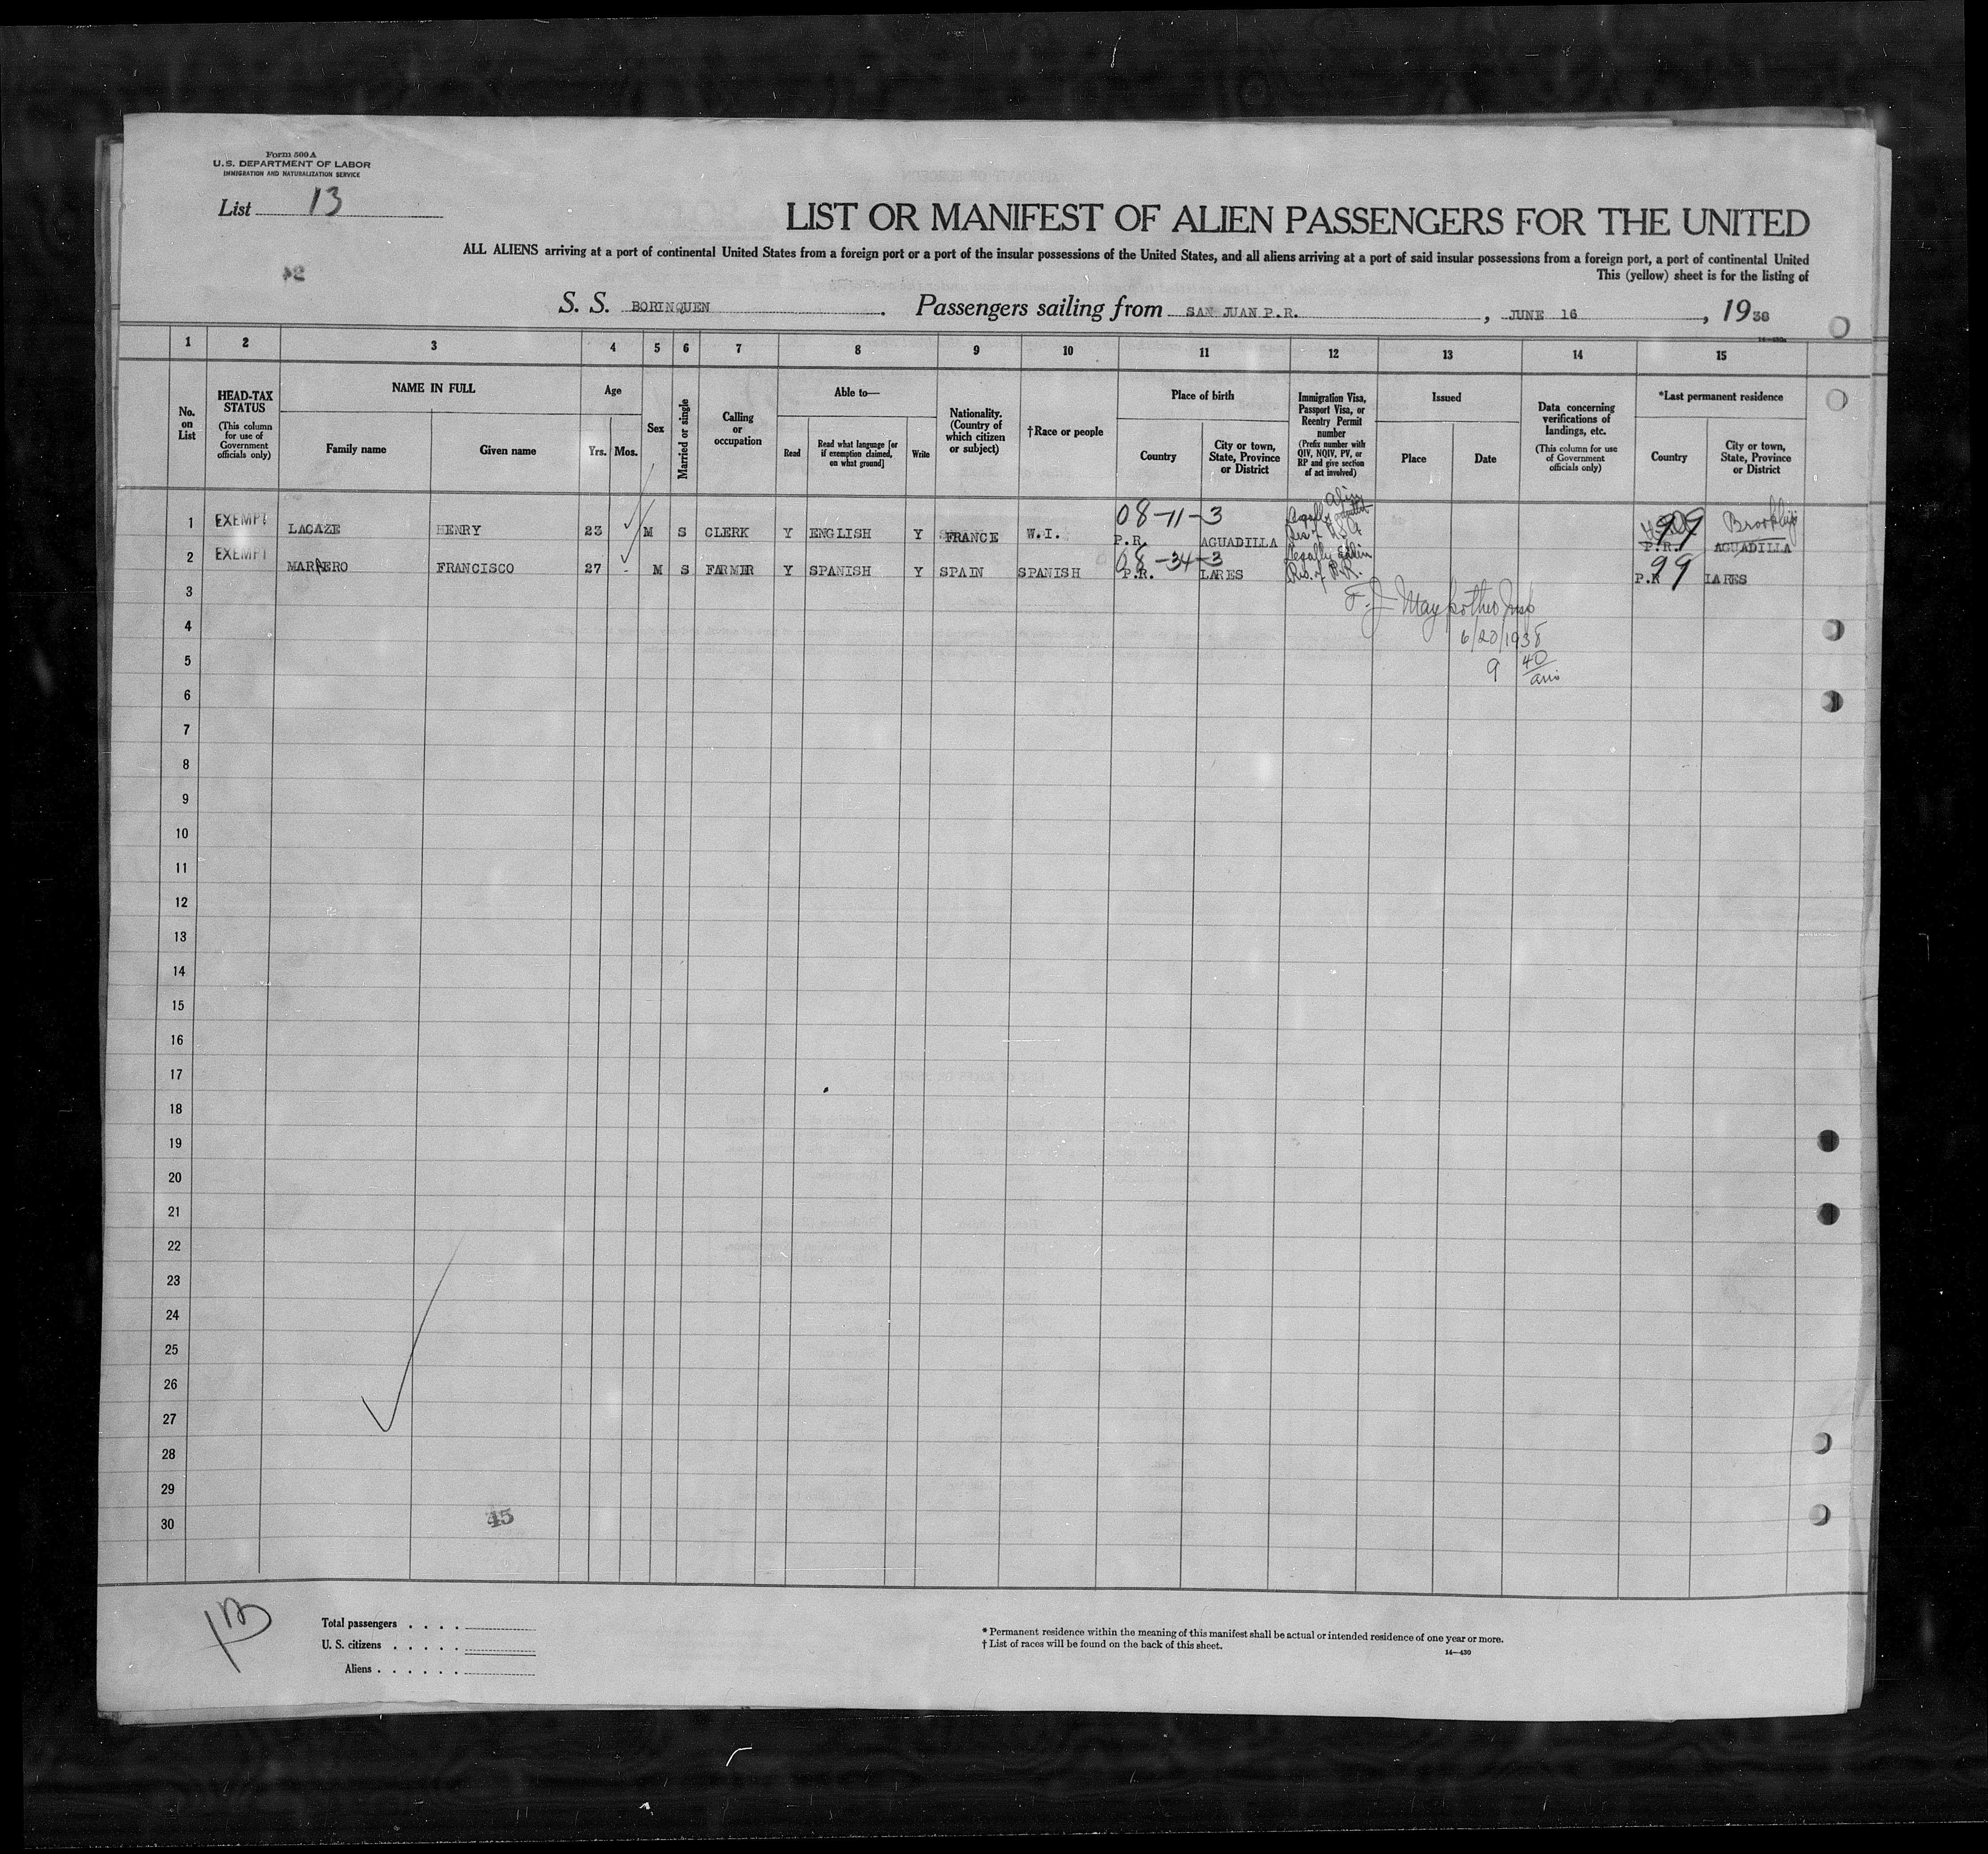 Form 500 A
U.S. DEPARTMENT OF LABOR
IMMIGRATION AND NATURALIZATION SERVICE
List 13
LIST OR MANIFEST OF ALIEN PASSENGERS FOR THE UNITED
ALL ALIENS arriving at a port of continental United States from a foreign port or a port of the insular possessions of the United States, and all aliens arriving at a port of said insular possessions from a foreign port, a port of continental United
This (yellow) sheet is for the listing of
S. S. BORINQUEN. Passengers sailing from SAN JUAN P.R., JUNE 16, 1938
1 2 3 4 5 6 7 8 9 10 11 12 13 14 15
No. on List
HEAD-TAX STATUS (This column for use of Government officials only)
NAME IN FULL
Family name Given name
Age
Yrs. Mos.
Sex
Married or single
Calling or occupation
Able to—
Read
Read what language [or if exemption claimed, on what ground]
Write
Nationality. (Country of which citizen or subject)
†Race or people
Place of birth
Country
City or town, State, Province or District
Immigration Visa, Passport Visa, or Reentry Permit number (Prefix number with QIV, NQIV, PV, or RP and give section of act involved)
Issued
Place Date
Data concerning verifications of landings, etc. (This column for use of Government officials only)
*Last permanent residence
Country
City or town, State, Province or District
08-11-3 99 Brooklyn
1 EXEMPT LACAZE HENRY 23 M S CLERK Y ENGLISH Y FRANCE W.I. P.R. AGUADILLA P.R. AGUADILLA
08-34-3 99
2 EXEMPT MARRERO FRANCISCO 27 - M S FARMER Y SPANISH Y SPAIN SPANISH P.R. LARES Res. of P.R. P.R LARES
3
4 6/20/1938
5 9 40
6
7
8
9
10
11
12
13
14
15
16
17
18
19
20
21
22
23
24
25
26
27
28
29
30
45
13
Total passengers . . . .
U. S. citizens . . . . .
Aliens . . . . . .
* Permanent residence within the meaning of this manifest shall be actual or intended residence of one year or more.
† List of races will be found on the back of this sheet.
14—430